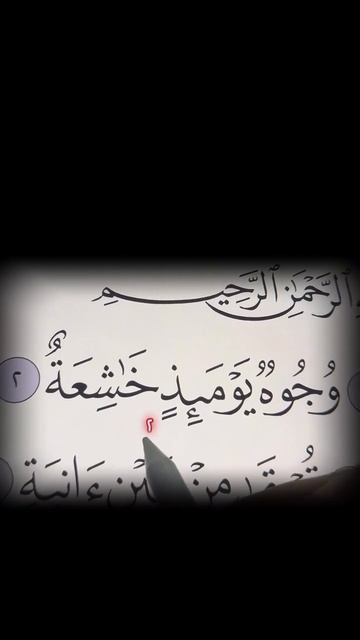 الرَّحْمَٰنِ الرَّحِيمِ
وُجُوهٌ يَوْمَئِذٍ خَٰشِعَةٌ ٢
٢
مِنْ عَيْنٍ ءَانِيَةٍ